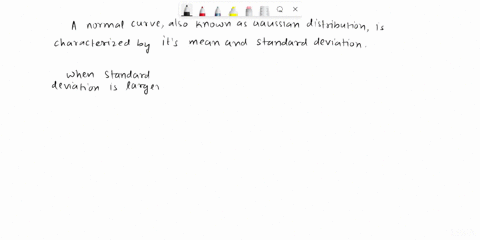 A normal curve, also known as Gaussian distribution, is
characterized by it's mean and standard deviation.
when standard
deviation is larger